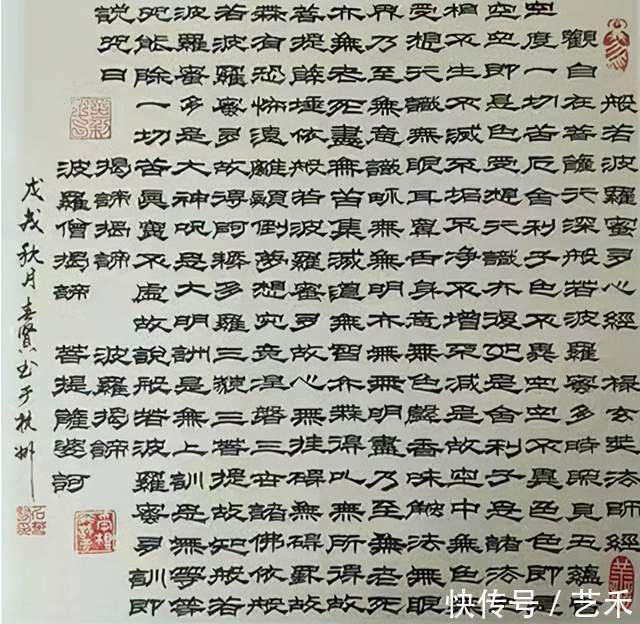 般若波羅蜜多心經 玄奘法師經
觀自在菩薩行深般若波羅蜜多時照見五蘊
空度一切苦厄舍利子色不異空空不異色色即是
空空即是色受想行識亦復如是舍利子是諸法空
相不生不滅不垢不淨不增不減是故空中無色無
受想行識無眼耳鼻舌身意無色聲香味觸法無眼
界乃至無意識界無無明亦無無明盡乃至無老死
亦無老死盡無苦集滅道無智亦無得以無所得故
菩提薩埵依般若波羅蜜多故心無挂礙無罣礙故
無有恐怖遠離顛倒夢想究竟涅槃三世諸佛依般
若波羅蜜多故得阿耨多羅三藐三菩提故知般若
波羅蜜多是大神咒是大明咒是無上咒是無等等
咒能除一切苦真實不虛故說般若波羅蜜多咒即
說咒曰
揭諦揭諦 波羅揭諦
波羅僧揭諦 菩提薩婆訶
戊戌秋月喜賢書于杭州
快传号/艺禾